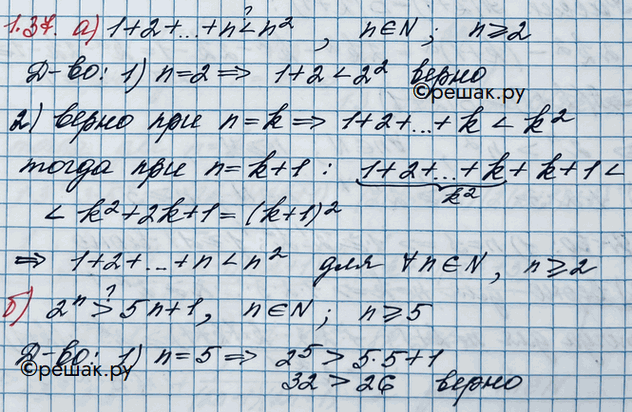 1.37. а) 1+2+...+n <? n², n∈N; n≥2
Д-во: 1) n=2 ⇒ 1+2<2² верно
©решак.ру
2) верно при n=k ⇒ 1+2+...+k < k²
тогда при n=k+1: 1+2+...+k + k+1 <
k²
< k²+2k+1 = (k+1)²
⇒ 1+2+...+n < n² для ∀n∈N, n≥2
б) 2ⁿ >? 5n+1, n∈N; n≥5
Д-во: 1) n=5 ⇒ 2⁵ > 5·5+1
©решак.ру
32 > 26 верно